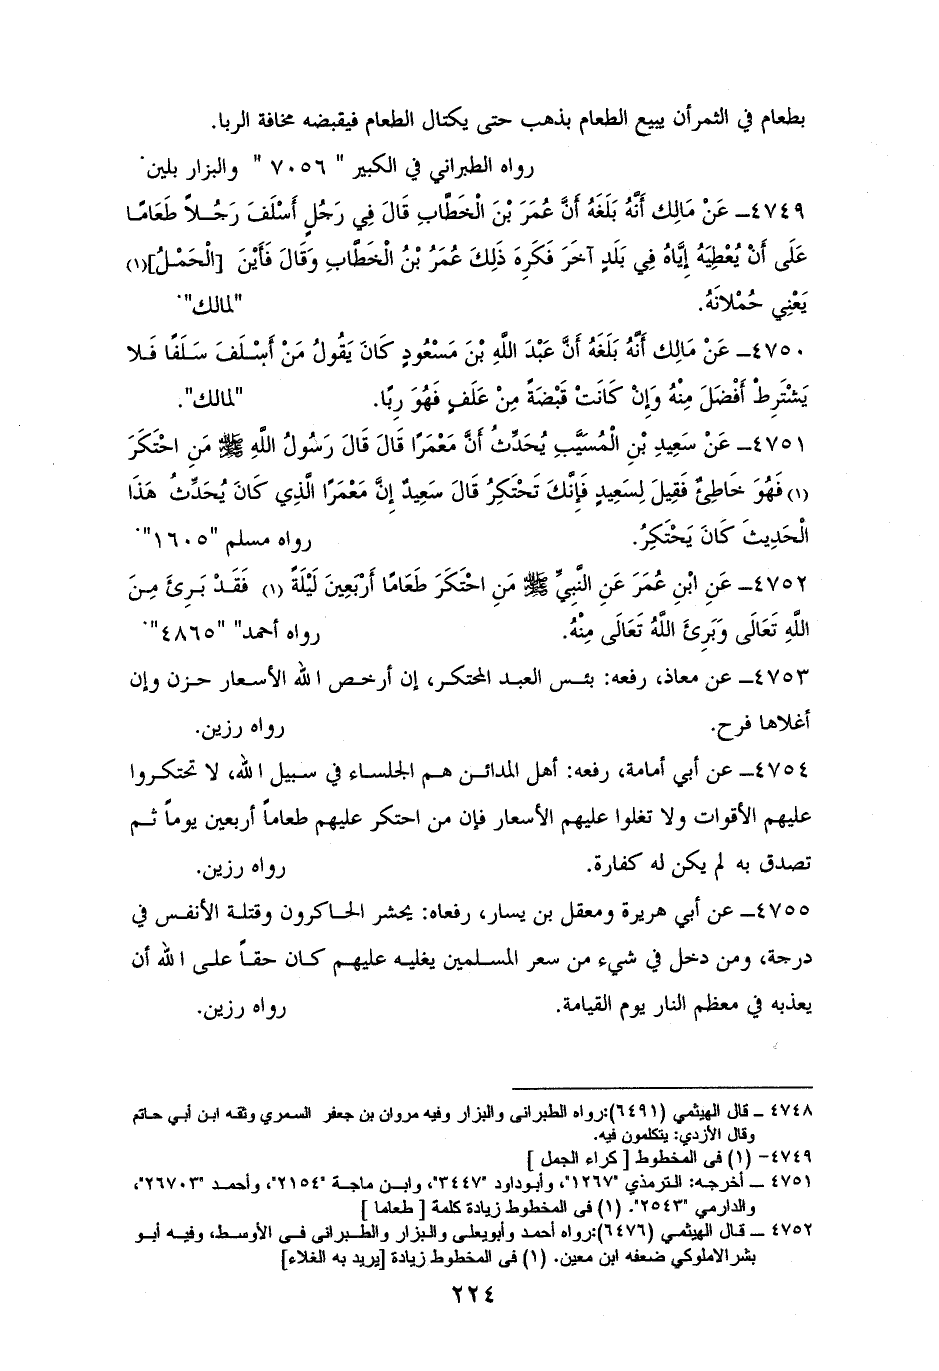 بطعام في الثمرأن يبيع الطعام بذهب حتى يكتال الطعام فيقبضه مخافة الربا.
رواه الطبراني في الكبير " ٧٠٥٦ " والبزار بلين.
٤٧٤٩ـ عَنْ مَالِك أَنَّهُ بَلَغَهُ أَنَّ عُمَرَ بْنَ الْخَطَّابِ قَالَ فِي رَجُلٍ أَسْلَفَ رَجُـلاً طَعَامًـا
عَلَى أَنْ يُعْطِيَهُ إِيَّاهُ فِي بَلَدٍ آخَرَ فَكَرِهَ ذَلِكَ عُمَرُ بْنُ الْخَطَّابِ وَقَالَ فَأَيْنَ [الْحَمْلُ](١)
يَعْنِي حُمْلانَهُ. "لمالك".
٤٧٥٠ـ عَنْ مَالِك أَنَّهُ بَلَغَهُ أَنَّ عَبْدَ اللَّهِ بْنَ مَسْعُودٍ كَانَ يَقُولُ مَنْ أَسْـلَفَ سَـلَفًا فَـلا
يَشْتَرِطْ أَفْضَلَ مِنْهُ وَإِنْ كَانَتْ قَبْضَةً مِنْ عَلَفٍ فَهُوَ رِبًا. "لمالك".
٤٧٥١ـ عَنْ سَعِيدِ بْنِ الْمُسَيَّبِ يُحَدِّثُ أَنَّ مَعْمَرًا قَالَ قَالَ رَسُولُ اللَّهِ ﷺ مَنِ احْتَكَرَ
(١) فَهُوَ خَاطِئٌ فَقِيلَ لِسَعِيدٍ فَإِنَّكَ تَحْتَكِرُ قَالَ سَعِيدٌ إِنَّ مَعْمَرًا الَّذِي كَانَ يُحَدِّثُ هَذَا
الْحَدِيثَ كَانَ يَحْتَكِرُ. رواه مسلم "١٦٠٥".
٤٧٥٢ـ عَنِ ابْنِ عُمَرَ عَنِ النَّبِيِّ ﷺ مَنِ احْتَكَرَ طَعَامًا أَرْبَعِينَ لَيْلَةً (١) فَقَـدْ بَـرِئَ مِـنَ
اللَّهِ تَعَالَى وَبَرِئَ اللَّهُ تَعَالَى مِنْهُ. رواه أحمد" "٤٨٦٥".
٤٧٥٣ـ عن معاذ، رفعه: بئـس العبـد المحتكـر، إن أرخـص الله الأسـعار حـزن وإن
أغلاها فرح. رواه رزين.
٤٧٥٤ـ عن أبي أمامة، رفعه: أهل المدائـن هـم الجلسـاء في سـبيل الله، لا تحتكـروا
عليهم الأقوات ولا تغلوا عليهم الأسعار فإن من احتكر عليهم طعاماً أربعين يوماً ثـم
تصدق به لم يكن له كفارة. رواه رزين.
٤٧٥٥ـ عن أبي هريرة ومعقل بن يسار، رفعاه: يحشر الحاكرون وقتلـة الأنفـس في
درجة، ومن دخل في شيء من سعر المسـلمين يغليـه عليهـم كـان حقـاً علـى الله أن
يعذبه في معظم النار يوم القيامة. رواه رزين.
٤٧٤٨ ـ قال الهيثمي (٦٤٩١):رواه الطبرانى والبزار وفيه مروان بن جعفر السمري وثقه ابن أبي حاتم
وقال الأزدي: يتكلمون فيه.
٤٧٤٩- (١) فى المخطوط [ كراء الجمل ]
٤٧٥١ ـ أخرجه: الترمذي "١٢٦٧"، وأبوداود "٣٤٤٧"، وابـن ماجـة "٢١٥٤"، وأحمـد "٢٦٧٠٣"،
والدارمي "٢٥٤٣". (١) فى المخطوط زيادة كلمة [ طعاما ]
٤٧٥٢ ـ قـال الهيثمي (٦٤٧٦):رواه أحمد وأبويعلى والبزار والطـبرانى فـى الأوسـط، وفيـه أبـو
بشرالاملوكي ضعفه ابن معين. (١) فى المخطوط زيادة [يريد به الغلاء]
٢٢٤